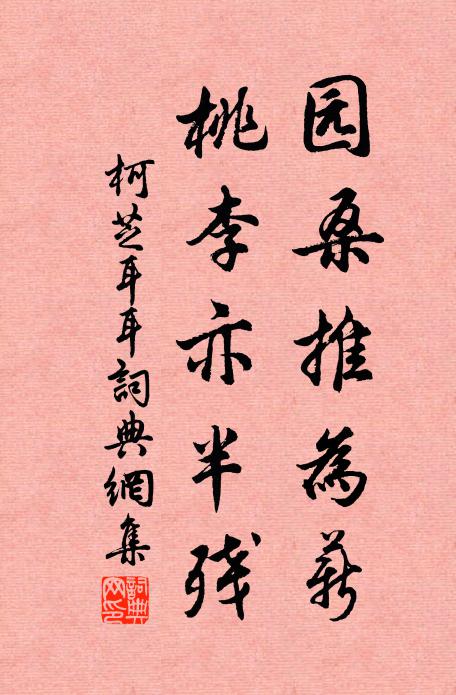 园桑推為薪
桃李亦半残
柯芝耳耳詞典網集
詞典網印